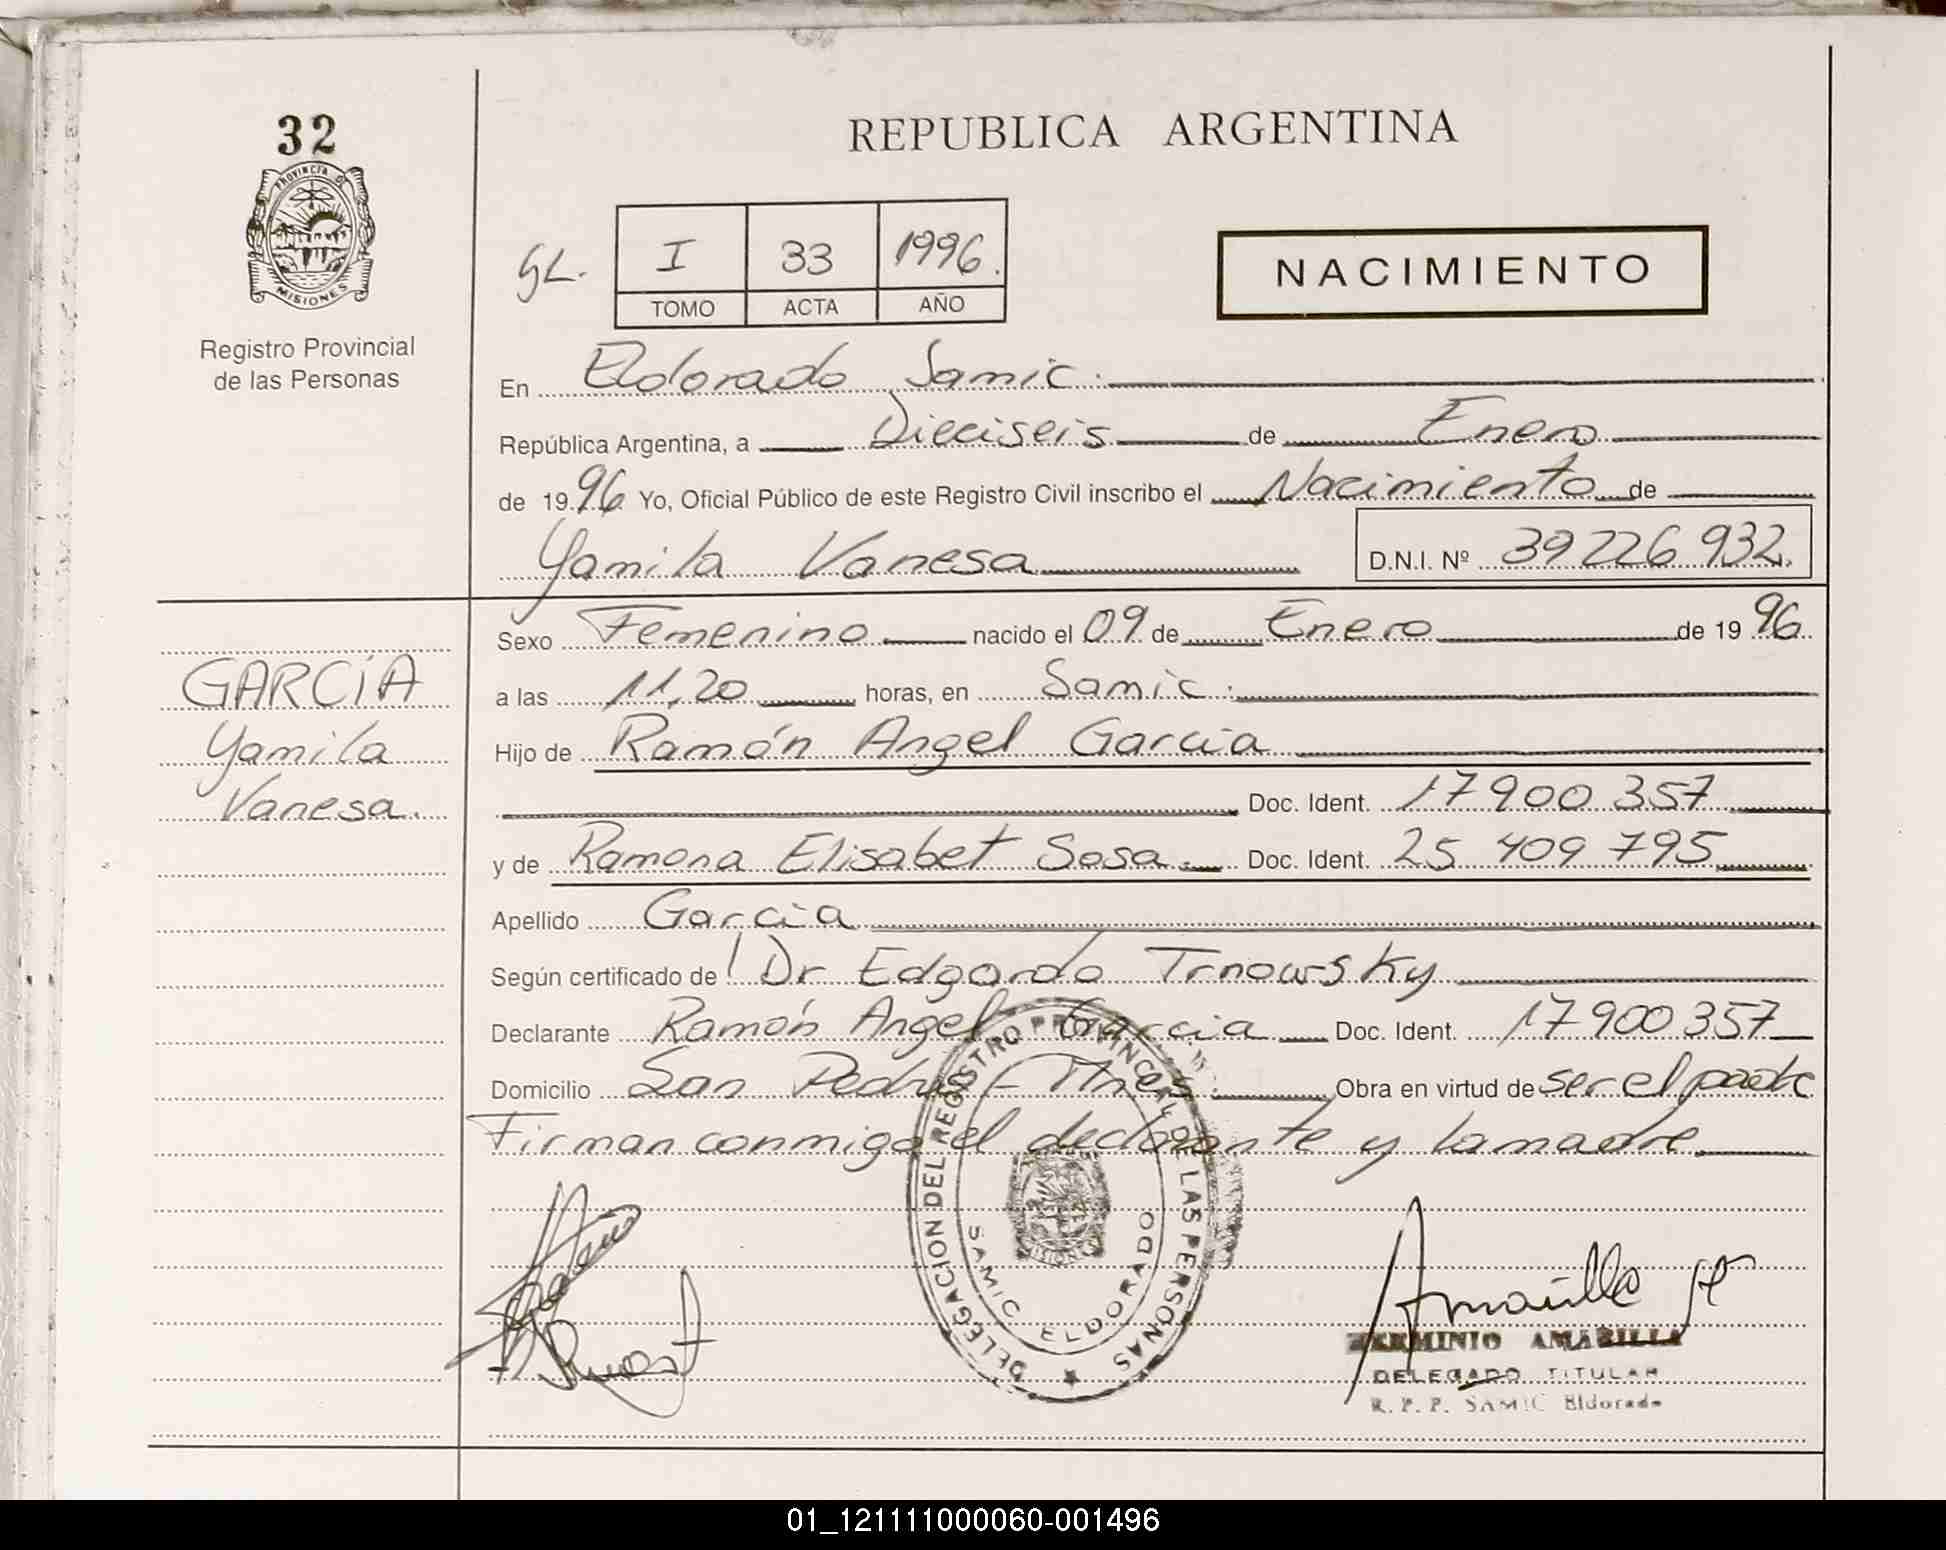 32
PROVINCIA DE
MISIONES
Registro Provincial
de las Personas
REPUBLICA ARGENTINA
GL.
I 33 1996.
TOMO ACTA AÑO
NACIMIENTO
En Eldorado Samic.
República Argentina, a Dieciseis de Enero
de 1996 Yo, Oficial Público de este Registro Civil inscribo el Nacimiento de
Yamila Vanesa D.N.I. Nº 39 226 932.
Sexo Femenino nacido el 09 de Enero de 1996
a las 11,20 horas, en Samic.
Hijo de Ramón Angel Garcia
Doc. Ident. 17 900 357
y de Ramona Elisabet Sosa. Doc. Ident. 25 409 795
Apellido Garcia
Según certificado de Dr Edgardo Trnowsky
Declarante Ramón Angel Garcia Doc. Ident. 17 900 357
Domicilio San Pedro - Mnes. Obra en virtud de ser el padre
Firman conmigo el declarante y la madre
GARCÍA
Yamila
Vanesa.
DELEGACION DEL REGISTRO PROVINCIAL DE LAS PERSONAS
MISIONES
SAMIC ELDORADO
Amarilla H
HERMINIO AMARILLA
DELEGADO TITULAR
R. P. P. SAMIC Eldorado
01_121111000060-001496